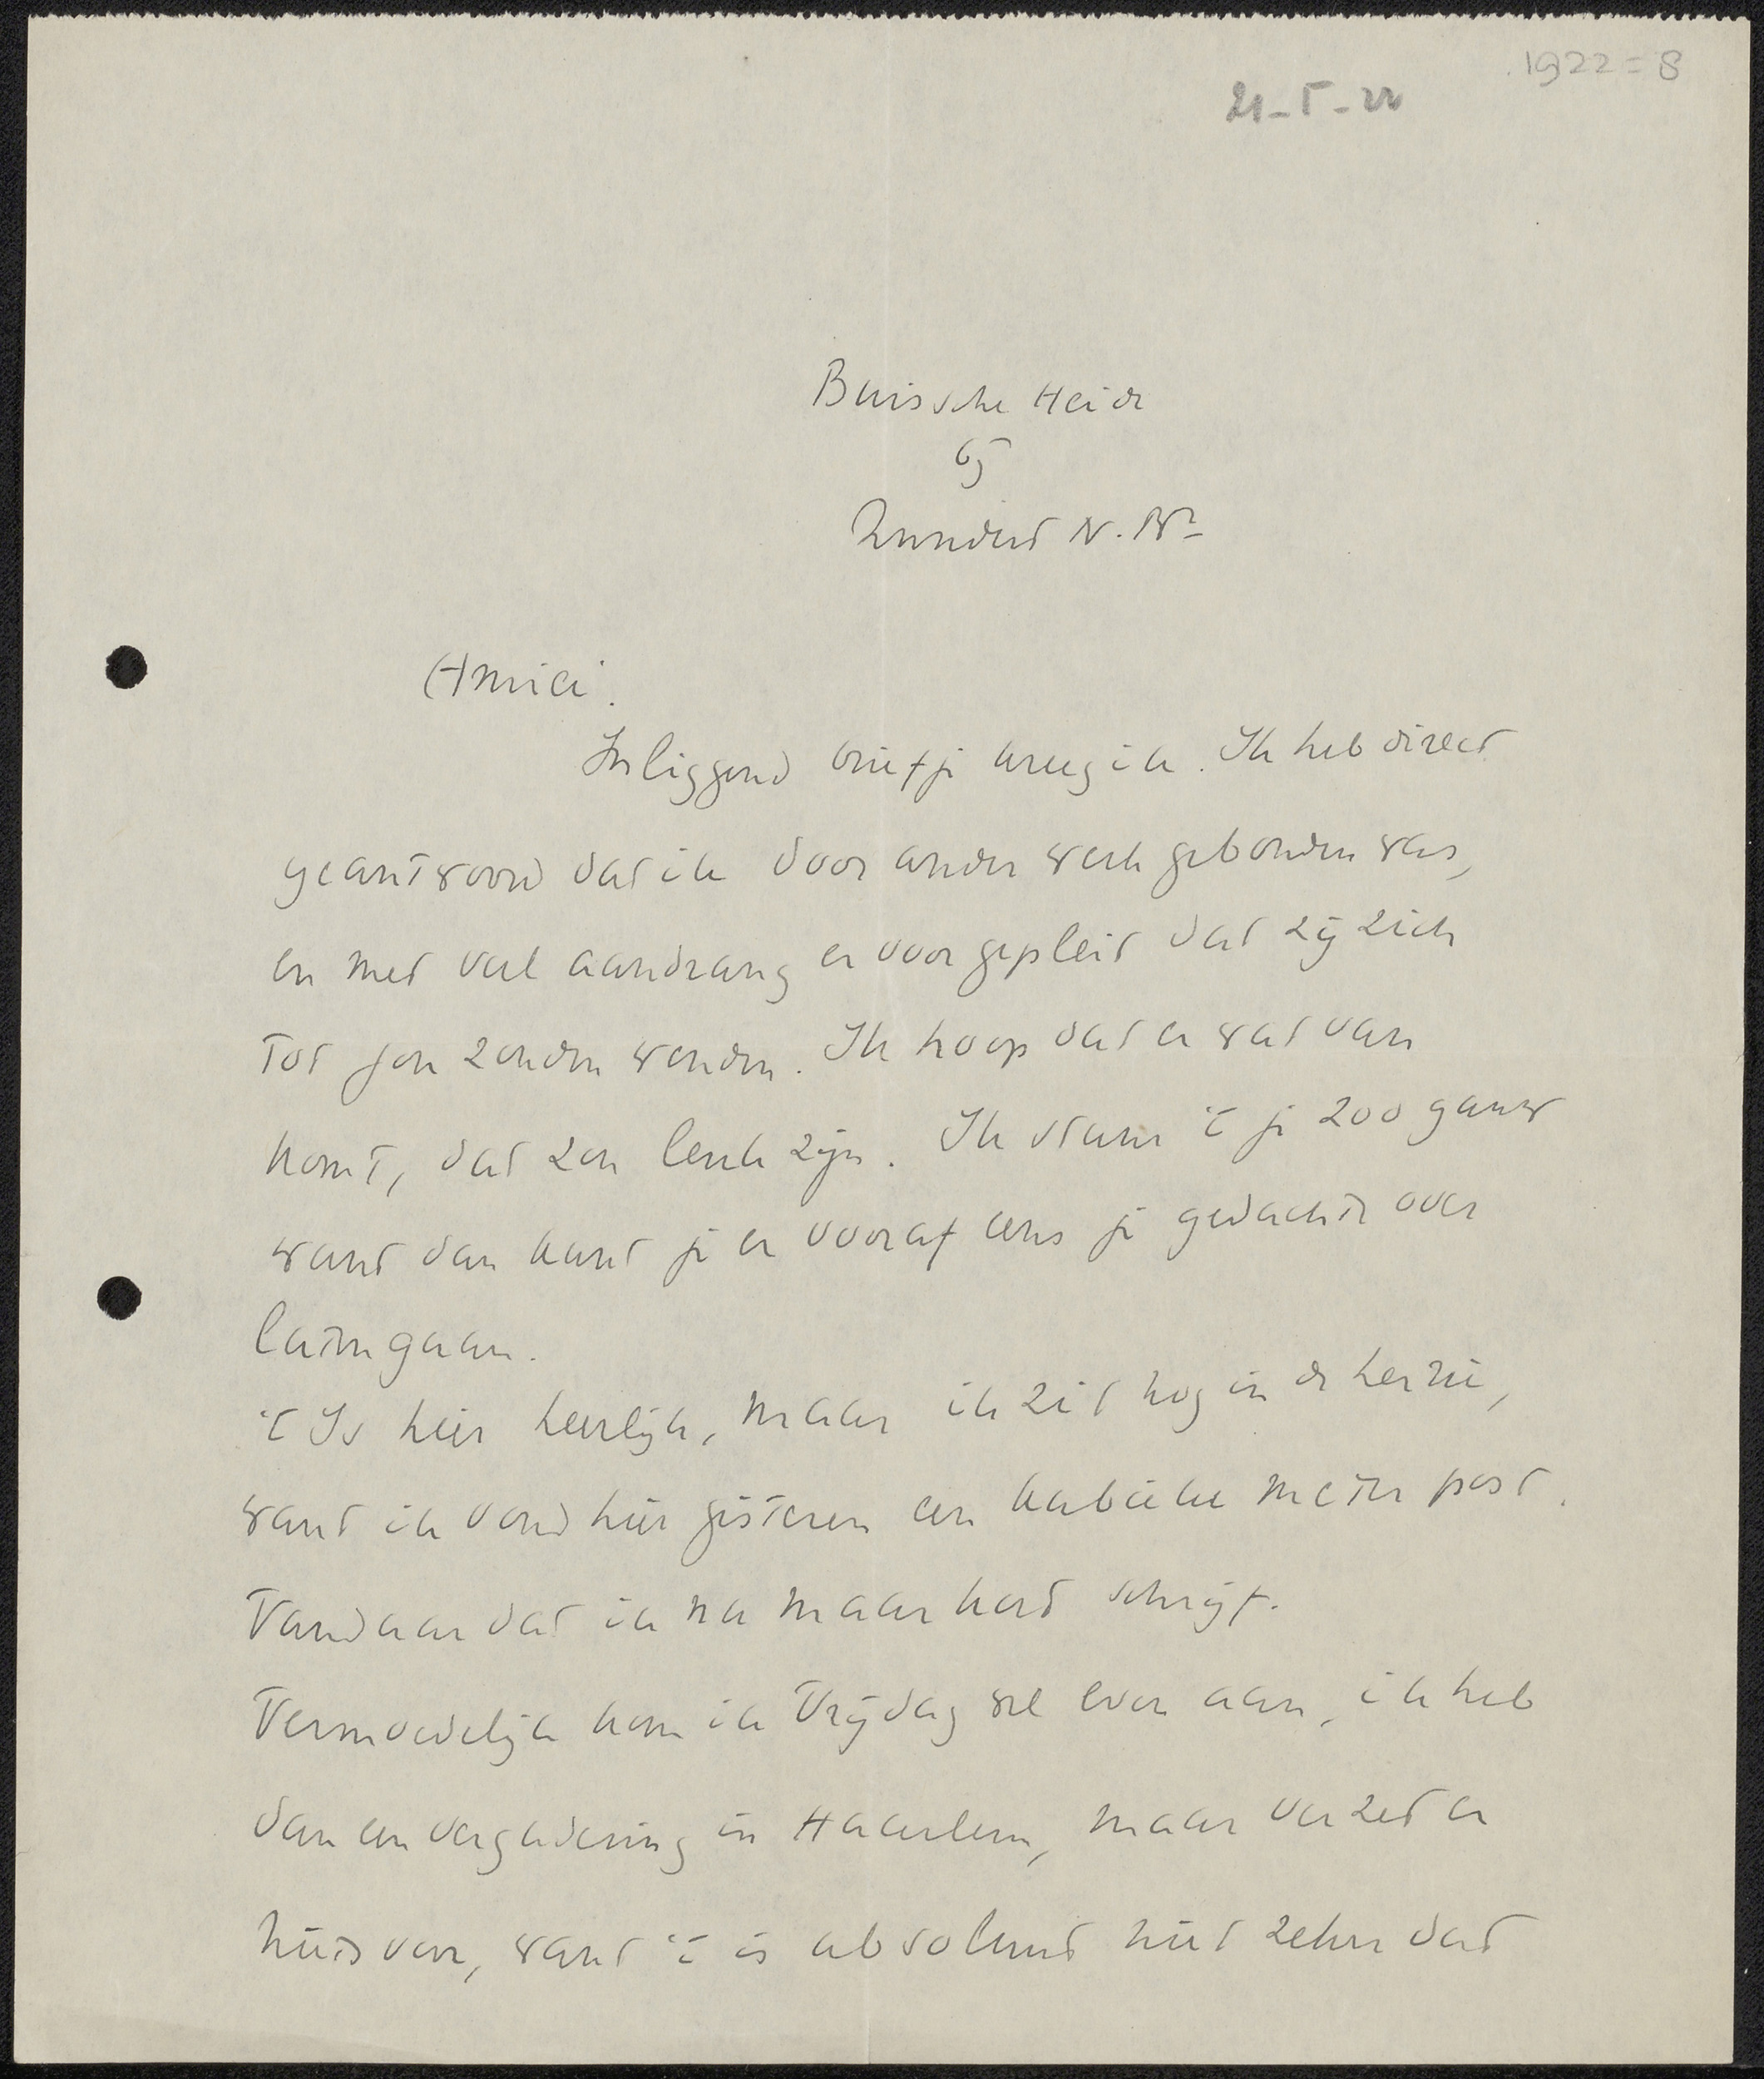 1922=8
21-5-22
Buissche Heide
bij
Zundert N. Br.
Amici.
Inliggend briefje kreeg ik. Ik heb direct
geantwoord dat ik door ander werk gebonden was,
en met veel aandrang er voor gepleit dat zij zich
tot jou zouden wenden. Ik hoop dat er wat van
komt, dat zou leuk zijn. Ik stuur 't je zoo gauw
want dan kunt je er vooraf eens je gedachte over
laten gaan.
't Is hier heerlijk, maar ik zit nog in de herrie,
want ik vond hier gisteren een kubieke meter post.
Vandaar dat ik nu maar kort schrijf.
Vermoedelijk kom ik Vrijdag wel even aan, ik heb
dan een vergadering in Haarlem, maar verzet er
niets voor, want 't is absoluut niet zeker dat